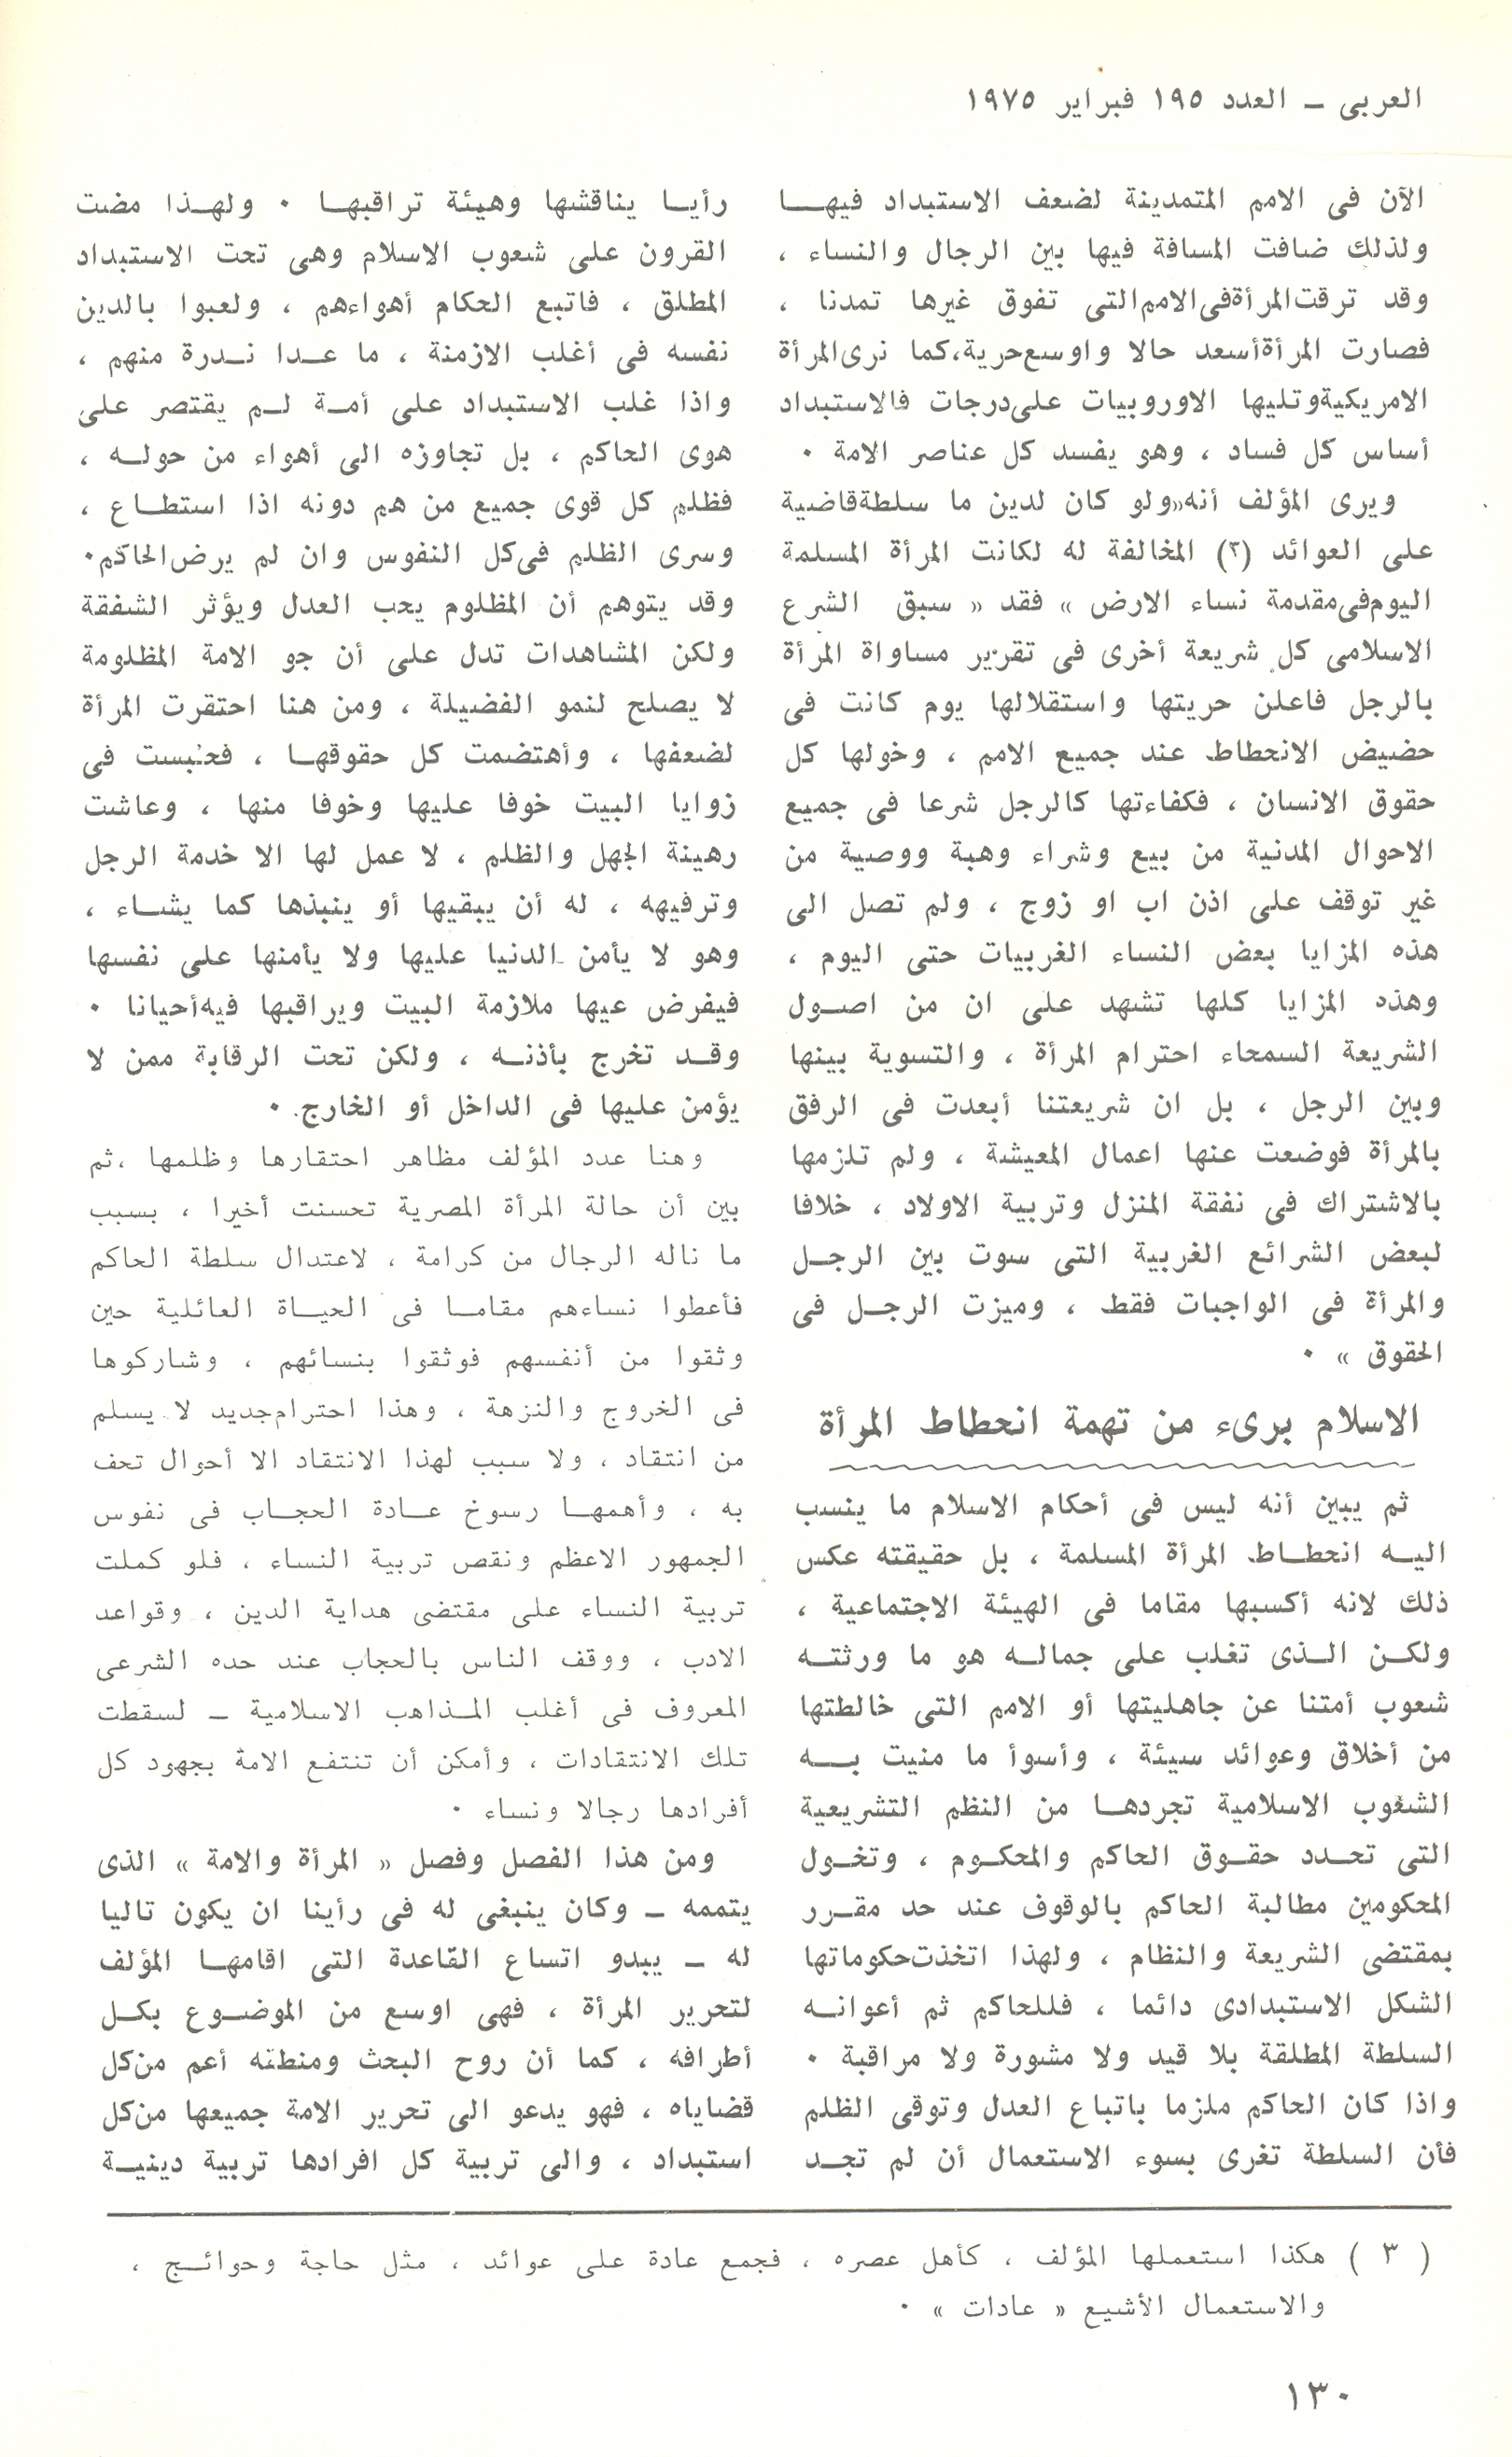 العربى ــ العدد ١٩٥ فبراير ١٩٧٥
الآن فى الامم المتمدينة لضعف الاستبداد فيهـــا
ولذلك ضافت المسافة فيها بين الرجال والنساء ،
وقد ترقت المرأة فى الامم التى تفوق غيرها تمدنا ،
فصارت المرأة أسعد حالا واوسع حرية، كما نرى المرأة
الامريكية وتليها الاوروبيات على درجات فالاستبداد
أساس كل فساد ، وهو يفسد كل عناصر الامة ٠
ويرى المؤلف أنه «ولو كان لدين ما سلطة قاضية
على العوائد (٣) المخالفة له لكانت المرأة المسلمة
اليوم فى مقدمة نساء الارض » فقد « سبق الشرع
الاسلامى كل شريعة أخرى فى تقرير مساواة المرأة
بالرجل فاعلن حريتها واستقلالها يوم كانت فى
حضيض الانحطاط عند جميع الامم ، وخولها كل
حقوق الانسان ، فكفاءتها كالرجل شرعا فى جميع
الاحوال المدنية من بيع وشراء وهبة ووصية من
غير توقف على اذن اب او زوج ، ولم تصل الى
هذه المزايا بعض النساء الغربيات حتى اليوم ،
وهذه المزايا كلها تشهد على ان من اصـول
الشريعة السمحاء احترام المرأة ، والتسوية بينها
وبين الرجل ، بل ان شريعتنا أبعدت فى الرفق
بالمرأة فوضعت عنها اعمال المعيشة ، ولم تلزمها
بالاشتراك فى نفقة المنزل وتربية الاولاد ، خلافا
لبعض الشرائع الغربية التى سوت بين الرجـل
والمرأة فى الواجبات فقط ، وميزت الرجـل فى
الحقوق » ٠
الاسلام برىء من تهمة انحطاط المرأة
ثم يبين أنه ليس فى أحكام الاسلام ما ينسب
اليـه انحطـاط المرأة المسلمة ، بل حقيقته عكس
ذلك لانه أكسبها مقاما فى الهيئة الاجتماعية ،
ولكـن الـذى تغلب على جمالـه هو ما ورثتـه
شعوب أمتنا عن جاهليتها أو الامم التى خالطتها
من أخلاق وعوائد سيئة ، وأسوأ ما منيت بـه
الشعوب الاسلامية تجردهـا من النظم التشريعية
التى تحـدد حقـوق الحاكم والمحكـوم ، وتخـول
المحكومين مطالبة الحاكم بالوقوف عند حد مقـرر
بمقتضى الشريعة والنظام ، ولهذا اتخذت حكوماتها
الشكل الاستبدادى دائما ، فللحاكم ثم أعوانـه
السلطة المطلقة بلا قيد ولا مشورة ولا مراقبة ٠
واذا كان الحاكم ملزما باتباع العدل وتوقى الظلم
فأن السلطة تغرى بسوء الاستعمال أن لم تجـد
رأيـا يناقشها وهيئة تراقبهـا ٠ ولهـذا مضت
القرون على شعوب الاسلام وهى تحت الاستبداد
المطلق ، فاتبع الحكام أهواءهم ، ولعبوا بالدين
نفسه فى أغلب الازمنة ، ما عـدا نـدرة منهم ،
واذا غلب الاستبداد على أمـة لـم يقتصر على
هوى الحاكم ، بل تجاوزه الى أهواء من حولـه ،
فظلم كل قوى جميع من هم دونه اذا استطـاع ،
وسرى الظلم فى كل النفوس وان لم يرض الحاكم ٠
وقد يتوهم أن المظلوم يحب العدل ويؤثر الشفقة
ولكن المشاهدات تدل على أن جو الامة المظلومة
لا يصلح لنمو الفضيلة ، ومن هنا احتقرت المرأة
لضعفها ، وأهتضمت كل حقوقهـا ، فحبست فى
زوايا البيت خوفا عليها وخوفا منها ، وعاشت
رهينة الجهل والظلم ، لا عمل لها الا خدمة الرجل
وترفيهه ، له أن يبقيها أو ينبذها كما يشـاء ،
وهو لا يأمن الدنيا عليها ولا يأمنها على نفسها
فيفرض عيها ملازمة البيت ويراقبها فيه أحيانا ٠
وقـد تخرج بأذنـه ، ولكن تحت الرقابة ممن لا
يؤمن عليها فى الداخل أو الخارج ٠
وهنا عدد المؤلف مظاهر احتقارها وظلمها ، ثم
بين أن حالة المرأة المصرية تحسنت أخيرا ، بسبب
ما ناله الرجال من كرامة ، لاعتدال سلطة الحاكم
فأعطوا نساءهم مقامـا فى الحيـاة العائلية حين
وثقوا من أنفسهم فوثقوا بنسائهم ، وشاركوها
فى الخروج والنزهة ، وهذا احترام جديد لا يسلم
من انتقاد ، ولا سبب لهذا الانتقاد الا أحوال تحف
به ، وأهمهـا رسوخ عـادة الحجـاب فى نفوس
الجمهور الاعظم ونقص تربية النساء ، فلو كملت
تربية النساء على مقتضى هداية الدين ، وقواعد
الادب ، ووقف الناس بالحجاب عند حده الشرعى
المعروف فى أغلب المـذاهب الاسلامية ــ لسقطت
تلك الانتقادات ، وأمكن أن تنتفع الامة بجهود كل
أفرادها رجالا ونساء ٠
ومن هذا الفصل وفصل « المرأة والامة » الذى
يتممه ــ وكان ينبغى له فى رأينا ان يكون تاليا
له ــ يبدو اتساع القاعدة التى اقامهـا المؤلف
لتحرير المرأة ، فهى اوسع من الموضـوع بكـل
أطرافه ، كما أن روح البحث ومنطقه أعم من كل
قضاياه ، فهو يدعو الى تحرير الامة جميعها من كل
استبداد ، والى تربية كل افرادها تربية دينيـة
( ٣ ) هكذا استعملها المؤلف ، كأهل عصره ، فجمع عادة على عوائد ، مثل حاجة وحوائـج ،
والاستعمال الأشيع « عادات » ٠
١٣٠